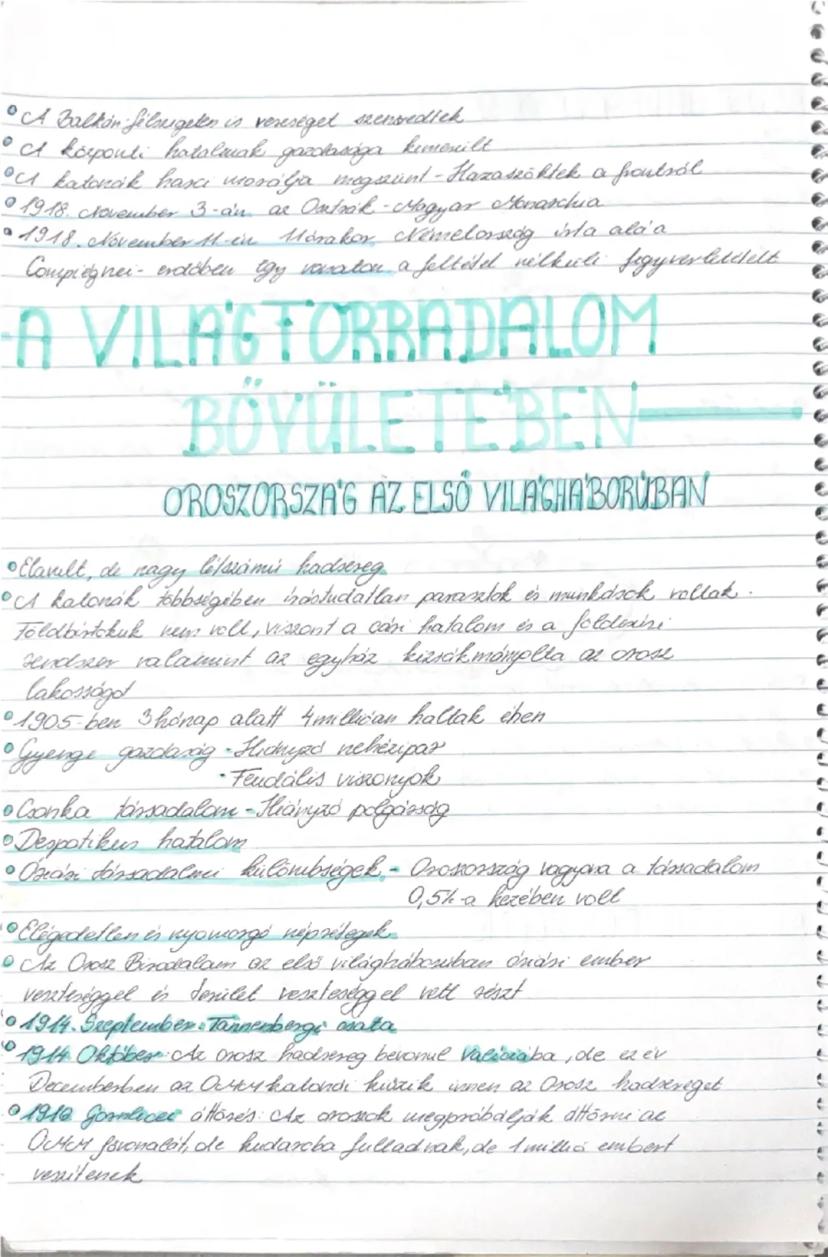 A Balkán-félszigeten is vereséget szenvedtek
A központi hatalmak gazdasága kimerült
A katonák harci morálja megszűnt - Hazaszöktek a frontról
1918. November 3-án az Osztrák-Magyar Monarchia
1918. November 11-én 11órakor Németország írta alá a
Compiégnei- erdőben egy vonaton a feltétel nélküli fegyverletételt
A VILÁGFORRADALOM
BŐVÜLETÉBEN
OROSZORSZÁG AZ ELSŐ VILÁGHÁBORÚBAN
Elavult, de nagy létszámú hadsereg
A katonák többségében írástudatlan parasztok és munkások voltak.
Földbirtokuk nem volt, viszont a cári hatalom és a földesúri
rendszer valamint az egyház kizsákmányolta az orosz
lakosságot
1905-ben 3 hónap alatt 4 millióan haltak éhen
Gyenge gazdaság - Hiányzó nehézipar
- Feudális viszonyok
Csonka társadalom - Hiányzó polgárság
Despotikus hatalom
Óriási társadalmi külömbségek - Oroszország vagyona a társadalom
0,5%-a kezében volt
Elégedetlen és nyomorgó népréteg​ek
Az Orosz Birodalom az első világháborúban óriási ember
veszteséggel és terület veszteséggel vett részt
1914. Szeptember: Tannenbergi csata
1914 Október: Az orosz hadsereg bevonul ba, de ez év
Decemberben az OMM katonái űzik innen az Orosz hadsereget
Gorlicei áttörés: Az oroszok megpróbálják áttörni az
OMM favonalát, de kudarcba fulladnak, de 1 millió embert
veszítenek